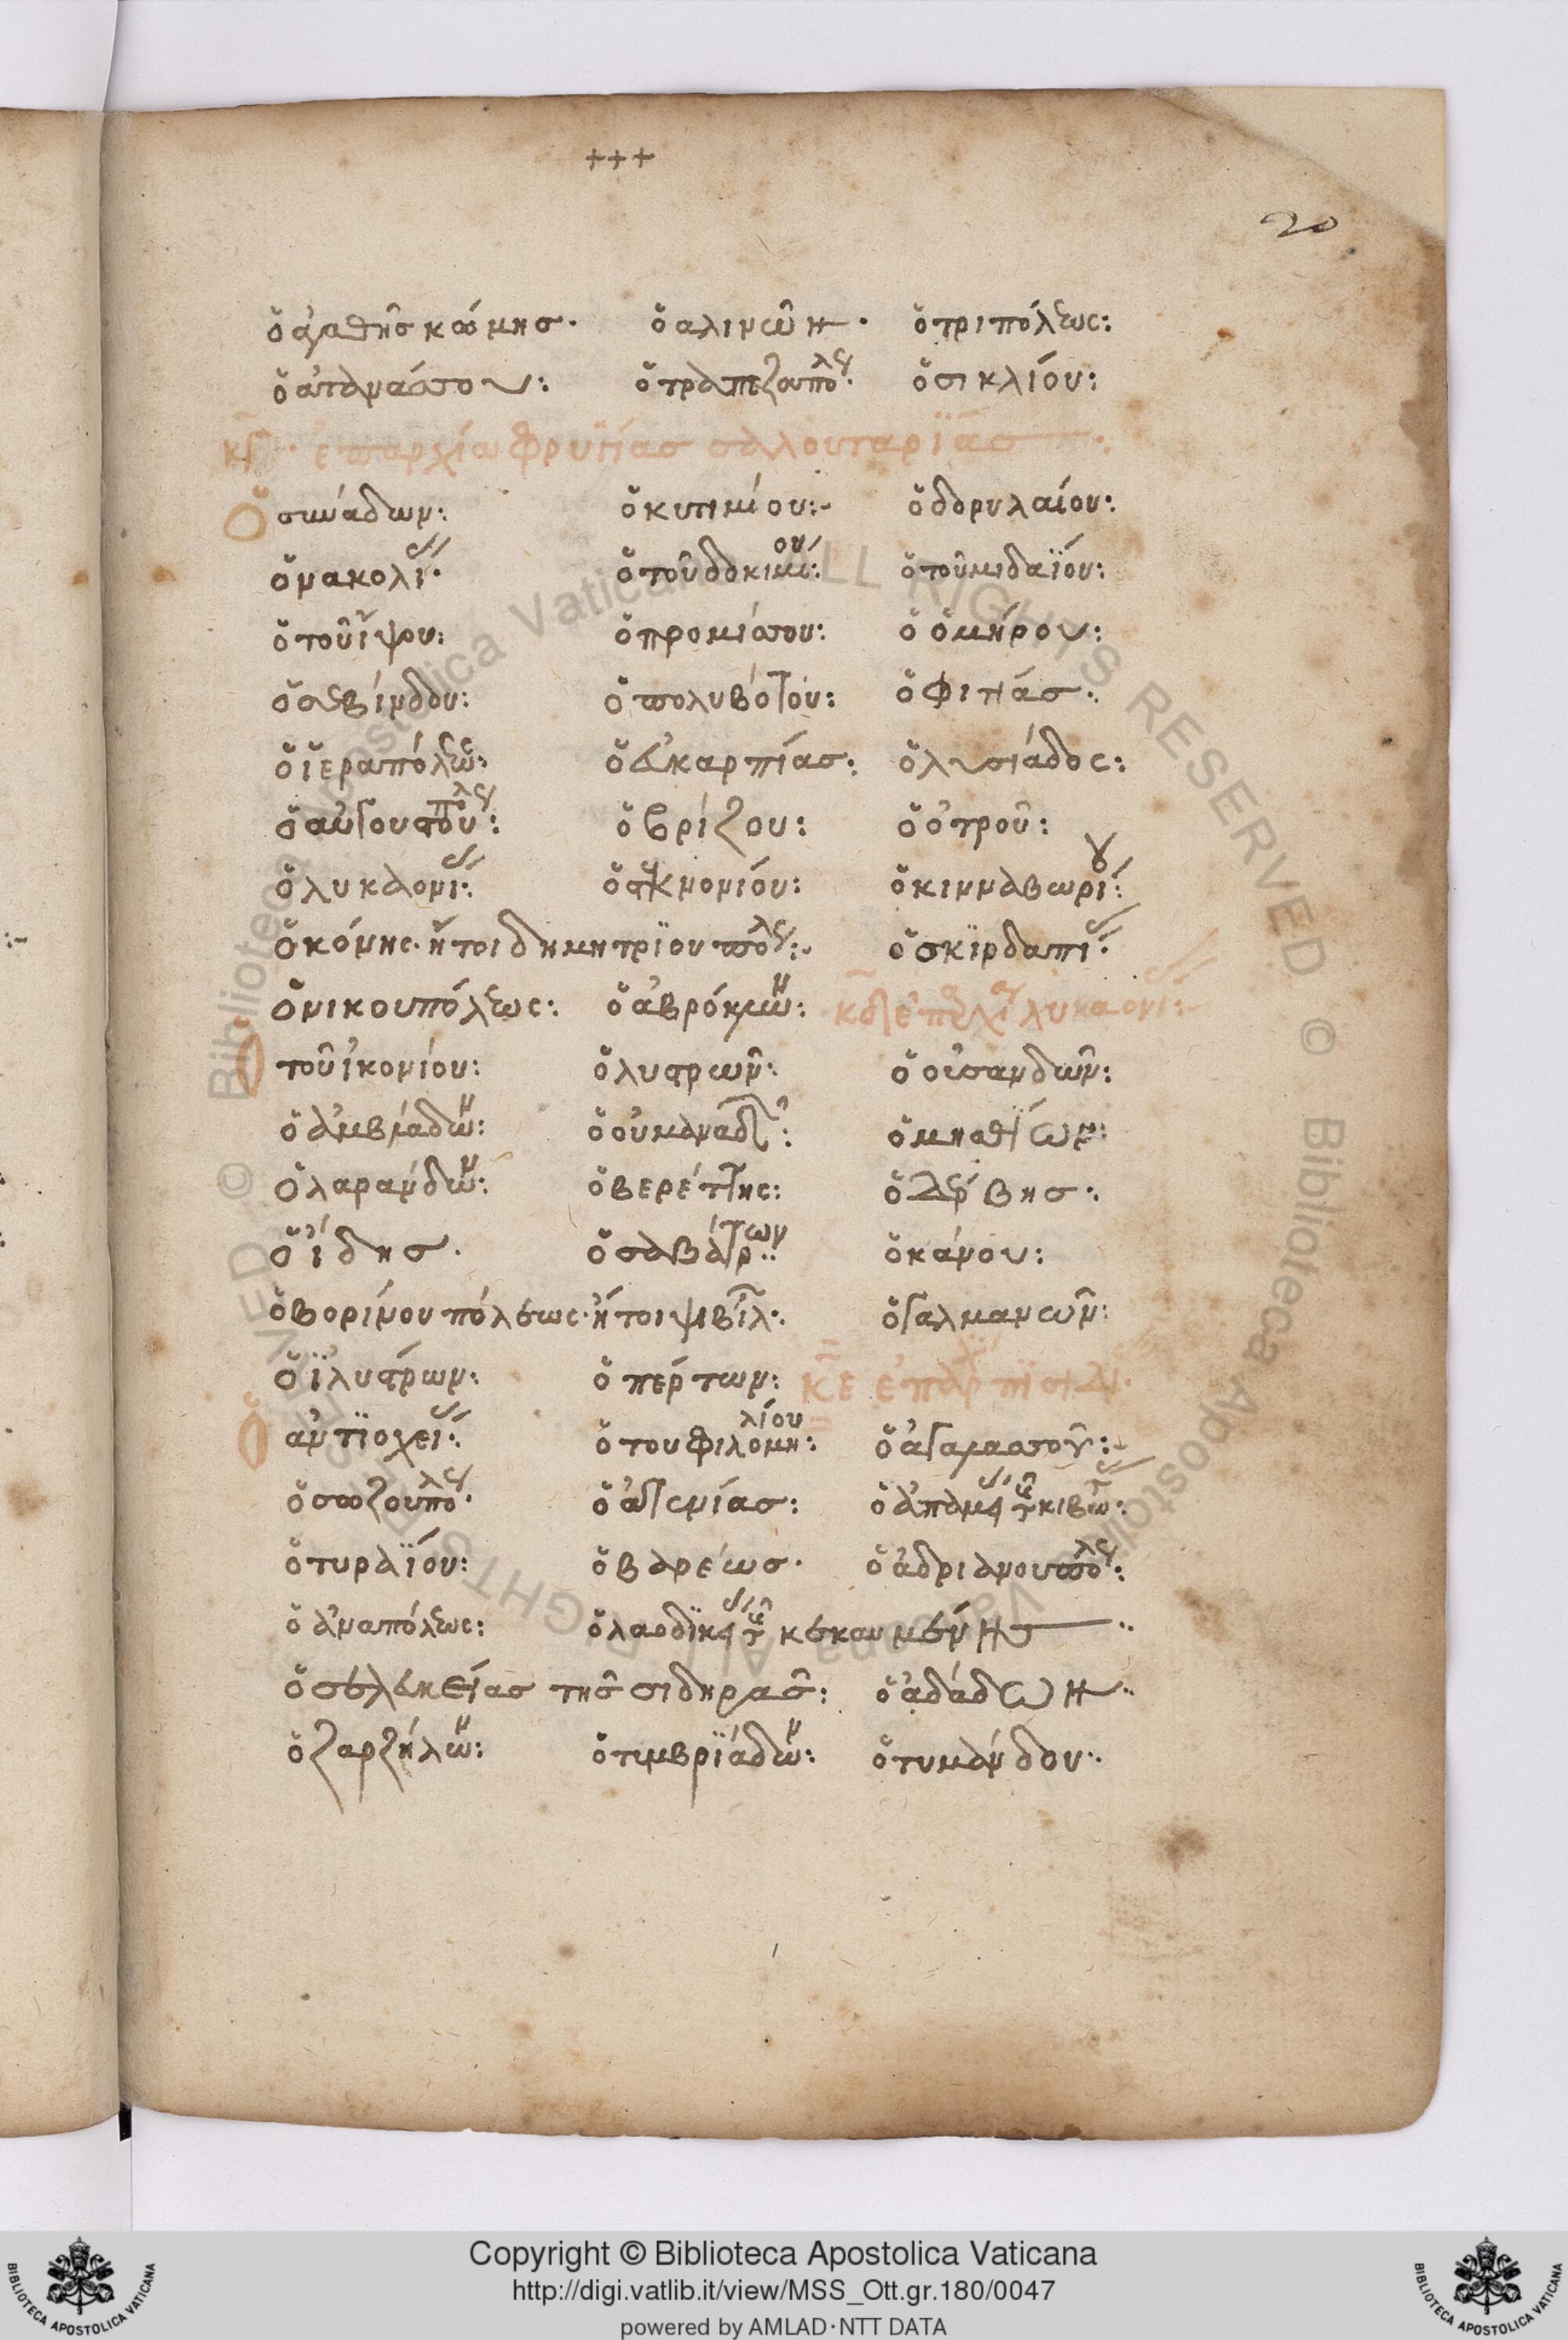 +++
20
ὁ ἀγαθῆς κώμης· ὁ αλινῶν· ὁ τριπόλεως:
ὁ ἀτανάσσου: ὁ τραπεζουπόλεως· ὁ σικλίου:
κγ· ἐπαρχία φρυγίας σαλουταρίας·
Ὁ συνάδων: ὁ κυπιμίου: ὁ δορυλαίου:
ὁ νακολί· ὁ τοῦ δοκιμίου: ὁ τοῦ μιδαϊου:
ὁ τοῦ ἵψου: ὁ προμίσου: ὁ ὁμήρου:
ὁ σεβίνδου: ὁ πολυβότου: ὁ φιτίας·
ὁ ἱεραπόλεως: ὁ εὐκαρπίας: ὁ λυσιάδος:
ὁ αὐγουστουπόλεως: ὁ βρίζου: ὁ ὀτροῦ:
ὁ λυκαονί: ὁ στεκνονίου: ὁ κινναβωρίου:
ὁ κόνης· ἤτοι δημητρϊουπόλεως: ὁ σκϊρδαπί·
ὁ νικουπόλεως: ὁ ἀβρόκλων: κδ ἐπαρχία λυκαονί:
Ὁ τοῦ ἰκονίου: ὁ λυστρων: ὁ οὐσανδῶν:
ὁ ἀμβλάδων: ὁ οὐμανάδ: ὁ μησθϊων:
ὁ λαράνδων: ὁ βερέττης: ὁ δέρβης·
ὁ ἵδης· ὁ σαβάτρων: ὁ κάνου:
ὁ βορίνου πόλεως· ἤτοι ψιβίλ· ὁ γαλμανῶν:
ὁ ἰλύστρων: ὁ πέρτων: κε ἐπαρχ πϊσιδι·
Ὁ ἀντϊοχεί: ὁ του φιλομηλίου: ὁ ἀγαλασσοῦ:
ὁ σωζουπόλεως· ὁ ἀτενίας: ὁ ἀπαμεί τῆς κιβωτ:
ὁ τυραϊου: ὁ βαρέως· ὁ ἀδριανουπόλεως:
ὁ ἀναπόλεως: ὁ λαοδϊκεί τῆς κεκαυμένης
ὁ σελευκείας τῆς σιδηρας: ὁ ἀδάδων
ὁ ζαρζήλων: ὁ τιμβρϊάδων: ὁ τυμάνδου·
Copyright © Biblioteca Apostolica Vaticana
http://digi.vatlib.it/view/MSS_Ott.gr.180/0047
powered by AMLAD·NTT DATA